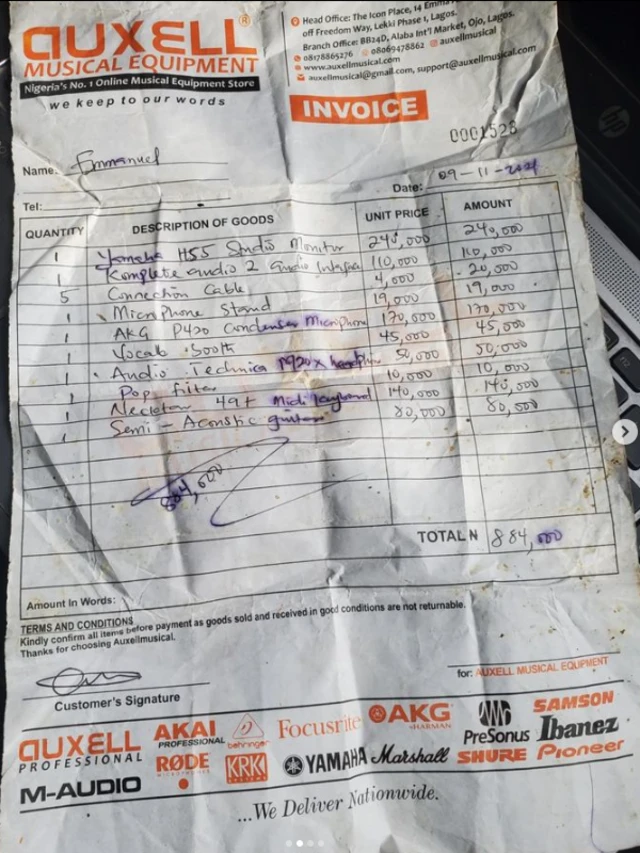 AUXELL®
MUSICAL EQUIPMENT
Nigeria's No. 1 Online Musical Equipment Store
we keep to our words
Head Office: The Icon Place, 14
off Freedom Way, Lekki Phase 1, Lagos.
Branch Office: BB24D, Alaba Int'l Market, Ojo, Lagos.
08178865276 08069478862 auxellmusical
www.auxellmusical.com
auxellmusical@gmail.com, support@auxellmusical.com
INVOICE
0001528
Name: Emmanuel
Date: 09-11-2021
Tel:
QUANTITY DESCRIPTION OF GOODS UNIT PRICE AMOUNT
1 Yamaha HS5 Studio Monitor 240,000 240,000
1 Komplete audio 2 audio Interface 110,000 110,000
5 Connection Cable 4,000 20,000
1 Microphone Stand 19,000 19,000
1 AKG P420 Condenser Microphone 170,000 170,000
1 Vocal Booth 45,000 45,000
1 Audio Technica 50,000 50,000
1 Pop filter 10,000 10,000
1 49+ Midi keyboard 140,000 140,000
1 Semi-Acoustic guitar 80,000 80,000
884,000
TOTAL N 884,000
Amount In Words:
TERMS AND CONDITIONS
Kindly confirm all items before payment as goods sold and received in good conditions are not returnable.
Thanks for choosing Auxellmusical.
for: AUXELL MUSICAL EQUIPMENT
Customer's Signature
AUXELL PROFESSIONAL
AKAI PROFESSIONAL
behringer
Focusrite
AKG
HARMAN
PreSonus
SAMSON
Ibanez
M-AUDIO
RØDE
MICROPHONES
KRK
SYSTEMS
YAMAHA
Marshall
SHURE
Pioneer
...We Deliver Nationwide.